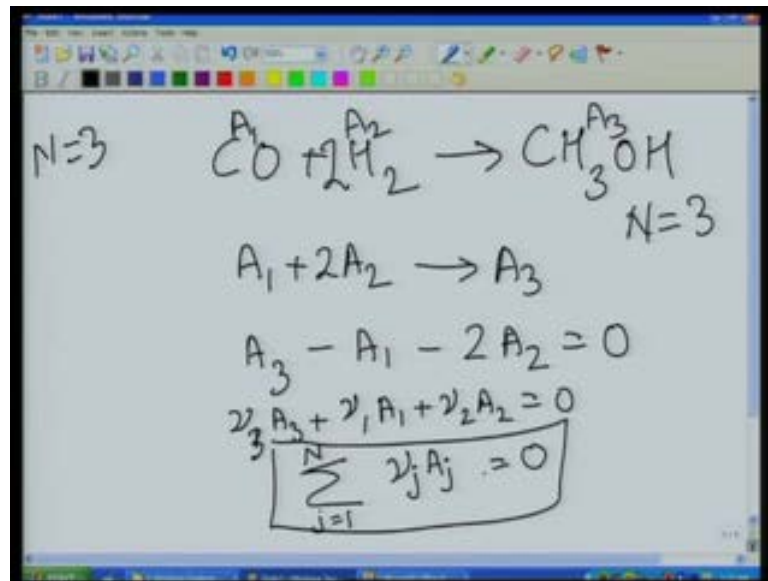 N=3
A1 A2 A3
CO + 2H2 → CH3OH
N=3
A1 + 2A2 → A3
A3 − A1 − 2A2 = 0
ν3 A3 + ν1 A1 + ν2 A2 = 0
N
∑ νj Aj = 0
j=1